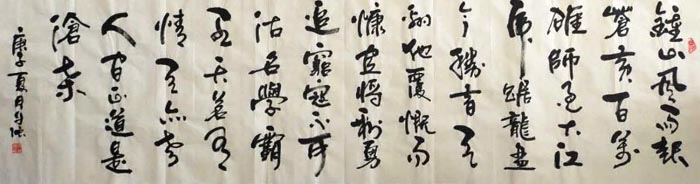 鐘山風雨起
蒼黃百萬
雄師過大江
虎踞龍盤
今勝昔天
翻地覆慨而
慷宜將剩勇
追窮寇不可
沽名學霸
王天若有
情天亦老
人間正道是
滄桑
庚子夏月